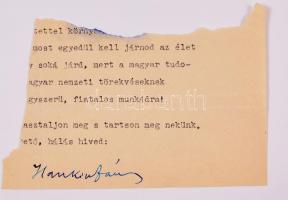 tettel környe
most egyedül kell járnod az élet
y soká járd, mert a magyar tudo-
agyar nemzeti törekvéseknek
gyszerű, fiatalos munkádra!
asztaljon meg s tartson meg nekünk.
ető, hálás híved:
Hankó János